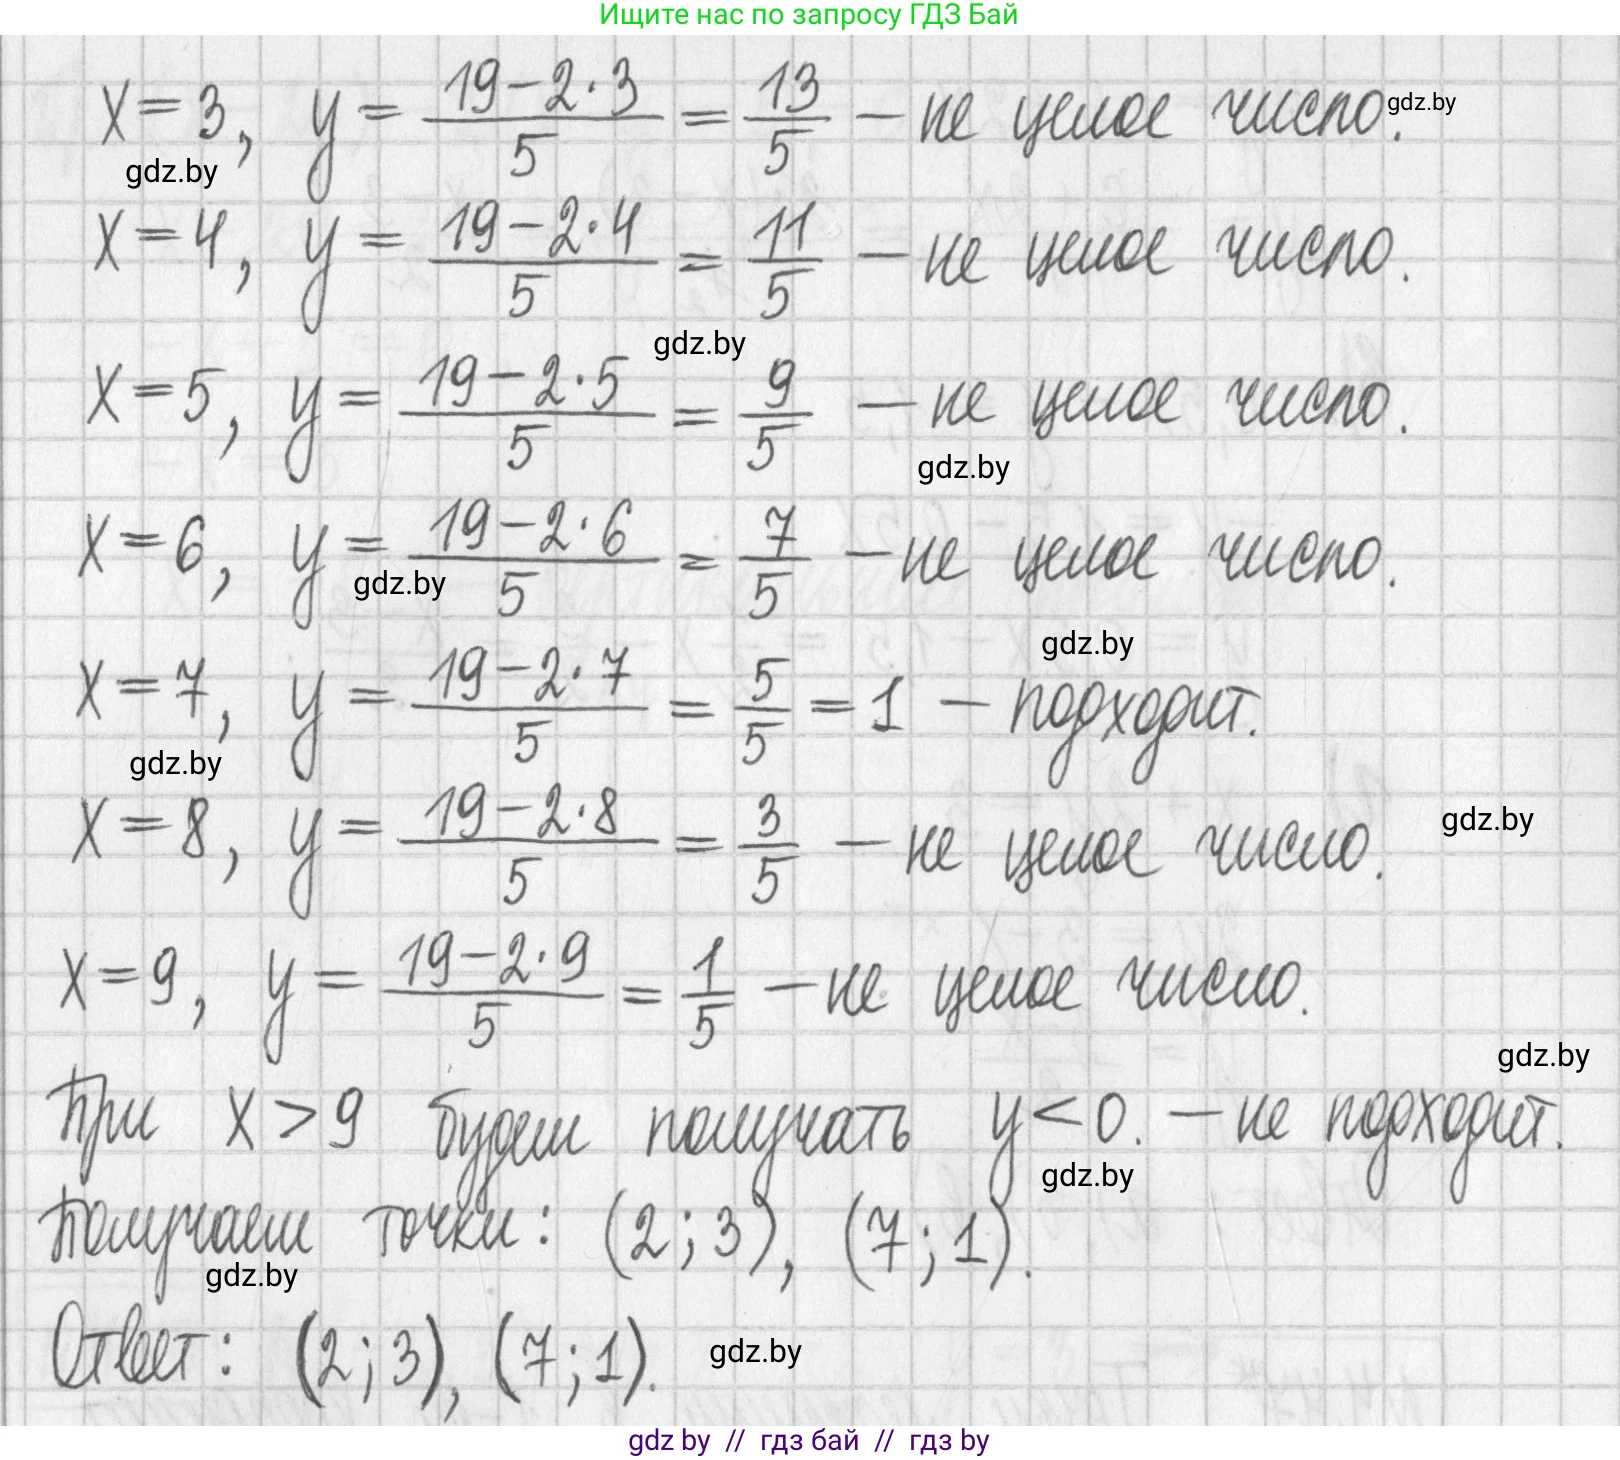 Ищите нас по запросу ГДЗ Бай
x=3, y = (19-2·3)/5 = 13/5 – не целое число. gdz.by
gdz.by
x=4, y = (19-2·4)/5 = 11/5 – не целое число.
gdz.by
x=5, y = (19-2·5)/5 = 9/5 – не целое число.
gdz.by
x=6, y = (19-2·6)/5 = 7/5 – не целое число.
gdz.by
gdz.by
x=7, y = (19-2·7)/5 = 5/5 = 1 – подходит.
gdz.by
x=8, y = (19-2·8)/5 = 3/5 – не целое число.
gdz.by
x=9, y = (19-2·9)/5 = 1/5 – не целое число.
gdz.by
При x>9 будем получать y<0. – не подходит.
gdz.by
Получаем точки: (2;3), (7;1).
gdz.by
Ответ: (2;3), (7;1).
gdz.by
gdz by // гдз бай // гдз by